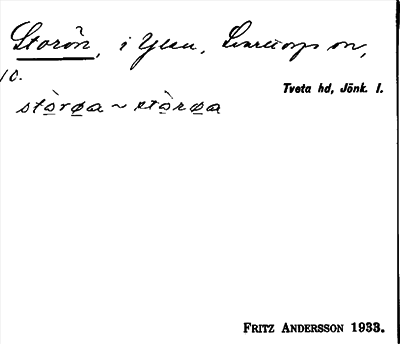 Storön, i Ylen, Svarttorps sn,
10.
Tveta hd, Jönk. l.
stòrøa ~ stòrøa
FRITZ ANDERSSON 1933.